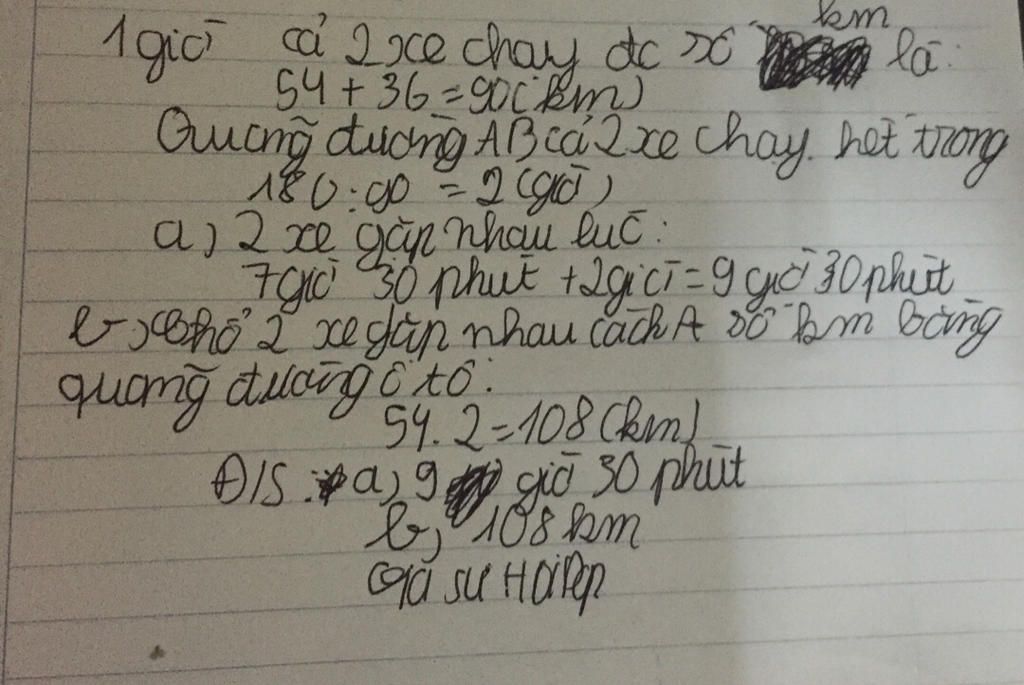 km
1 giờ cả 2 xe chạy đc số là:
54 + 36 = 90 (km)
Quãng đường AB cả 2 xe chạy hết trong
180 : 90 = 2 (giờ)
a, 2 xe gặp nhau lúc:
7 giờ 30 phút + 2 giờ = 9 giờ 30 phút
b, Chỗ 2 xe gặp nhau cách A số km bằng
quãng đường ô tô:
54 . 2 = 108 (km)
Đ/S: a, 9 giờ 30 phút
b, 108 km
Gia sư